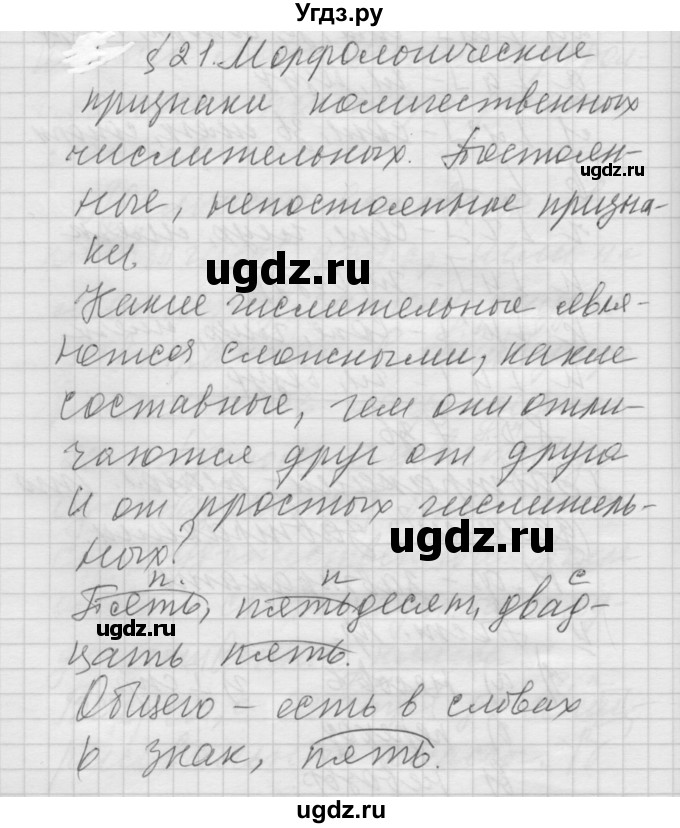 Угдз.ру
§ 21. Морфологические
признаки количественных
числительных. Постоян-
ugdz.ru
ные, непостоянные призна-
ки.
ugdz.ru
Какие числительные явля-
ются сложными, какие
составные, чем они отли-
чаются друг от друга
и от простых числитель-
ugdz.ru
ных?
п. п с
Пять, пятьдесят, двад-
ugdz.ru
цать пять.
Общего – есть в словах
ь знак, пять.
ugdz.ru